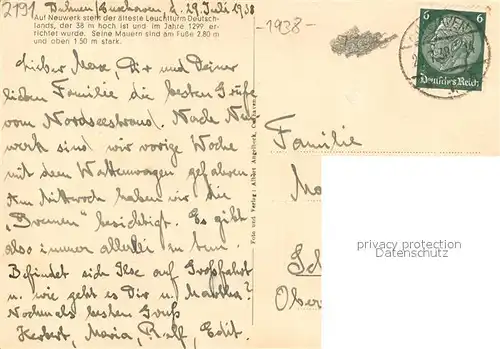 2191 Duhnen/Cuxhaven, d. 29. Juli 1938
Auf Neuwerk steht der älteste Leuchtturm Deutsch-
lands, der 38 m hoch ist und im Jahre 1299 er-
richtet wurde. Seine Mauern sind am Fuße 2.80 m
und oben 1.50 m stark.
Lieber Max, Dir und Deiner
lieben Familie die besten Grüße
vom Nordseestrand. Nach Neu
werk sind wir vorige Woche
mit dem Wattenwagen gefahren.
Am Mittwoch haben wir die
"Bremen" besichtigt. Es gibt
also immer allerlei zu tun.
Befindet sich Ilse auf Großfahrt
u. wie geht es Dir u. Martha?
Nochmals besten Gruß
Herbert, Maria, Ralf, Edit.
Foto und Verlag: Albert Angelbeck, Cuxhaven
-1938-
6 6
Deutsches Reich
Familie
Ma
Sch
Ober
privacy protection
Datenschutz